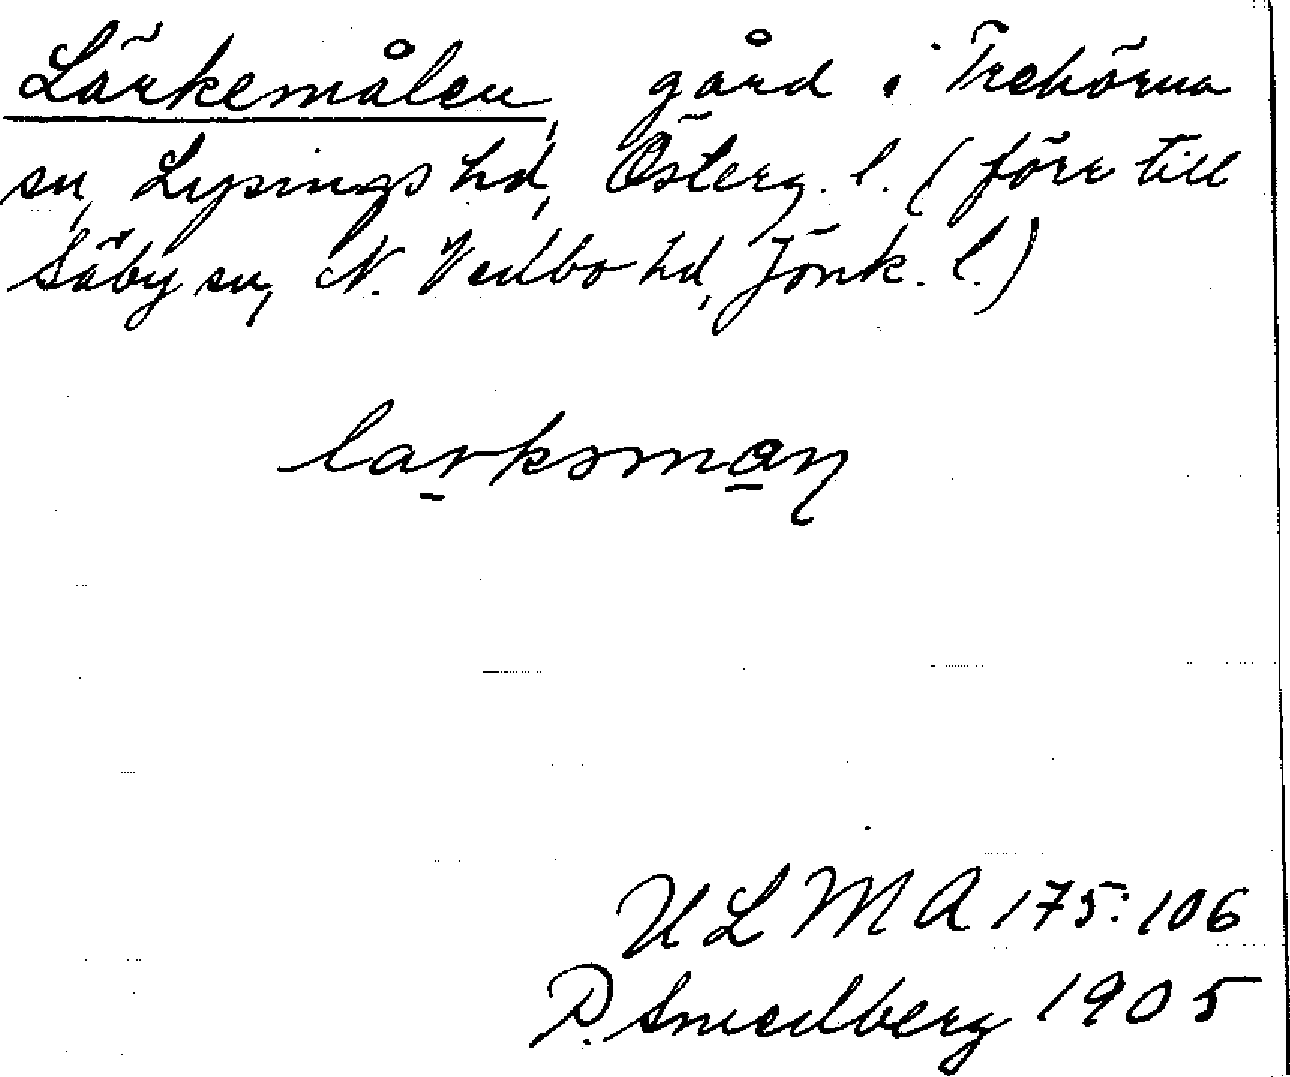 Lärkemålen, gård i Trehörna
sn, Lysings hd, Österg. l. (förr till
Säby sn, N. Vedbo hd, Jönk. l.)
ULMA 175:106
P. Smedberg 1905